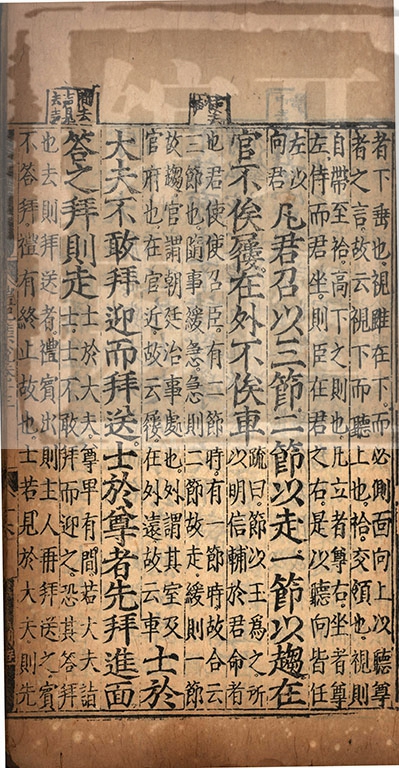 者下垂也視雖在下而必側面向上以聽尊
者之言故云視下而聽上也袷交領也視則
自帶至袷高下之則也凡立者尊右坐者尊
左侍而君坐則臣在君之右是以聽向皆任
左以
向君
凡君召以三節二節以走一節以趨在
官不俟屨在外不俟車
疏曰節以王爲之所
以明信輔於君命者
也君使使召臣有二節時有一節時故合云
三節也隨事緩急急則二節故走緩則一節
故趨官謂朝廷治事處也外謂其室及
官府也在官近故云屨在外遠故云車
士於
大夫不敢拜迎而拜送士於尊者先拜進面
答之拜則走
士於大夫尊卑有間若大夫詣
士士不敢拜而迎之恐其答拜
也去則拜送者禮賓出則主人再拜送之賓
不答拜禮有終止故也士若見於大夫則先